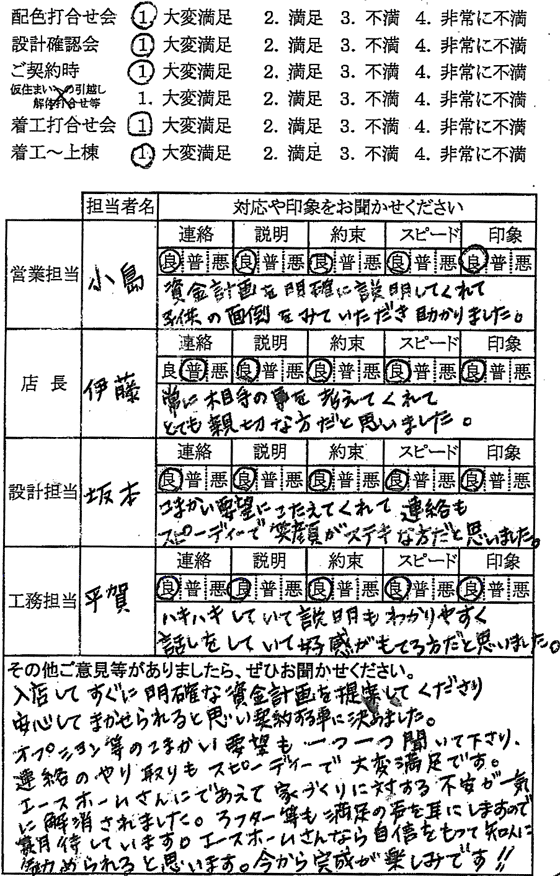 配色打合せ会 1. 大変満足 2. 満足 3. 不満 4. 非常に不満
設計確認会 1. 大変満足 2. 満足 3. 不満 4. 非常に不満
ご契約時 1. 大変満足 2. 満足 3. 不満 4. 非常に不満
仮住まいへの引越し
解体打合せ等 1. 大変満足 2. 満足 3. 不満 4. 非常に不満
着工打合せ会 1. 大変満足 2. 満足 3. 不満 4. 非常に不満
着工〜上棟 1. 大変満足 2. 満足 3. 不満 4. 非常に不満
担当者名 対応や印象をお聞かせください
連絡 説明 約束 スピード 印象
営業担当 小島 良 普 悪 良 普 悪 良 普 悪 良 普 悪 良 普 悪
資金計画を明確に説明してくれて
子供の面倒をみていただき助かりました。
連絡 説明 約束 スピード 印象
店長 伊藤 良 普 悪 良 普 悪 良 普 悪 良 普 悪 良 普 悪
常に相手の事を考えてくれて
とても親切な方だと思いました。
連絡 説明 約束 スピード 印象
設計担当 坂本 良 普 悪 良 普 悪 良 普 悪 良 普 悪 良 普 悪
こまかい要望にこたえてくれて 連絡も
スピーディーで笑顔がステキな方だと思いました。
連絡 説明 約束 スピード 印象
工務担当 平賀 良 普 悪 良 普 悪 良 普 悪 良 普 悪 良 普 悪
ハキハキしていて説明もわかりやすく
話しをしていて好感がもてる方だと思いました。
その他ご意見等がありましたら、ぜひお聞かせください。
入店してすぐに明確な資金計画を提案してくださり
安心してまかせられると思い契約する事に決めました。
オプション等のこまかい要望も一つ一つ聞いて下さり、
連絡のやり取りもスピーディーで大変満足です。
エースホームさんにであえて家づくりに対する不安が一気
に解消されました。アフター等も満足の声を耳にしますので
期待しています。エースホームさんなら自信をもって知人に
勧められると思います。今から完成が楽しみです!!